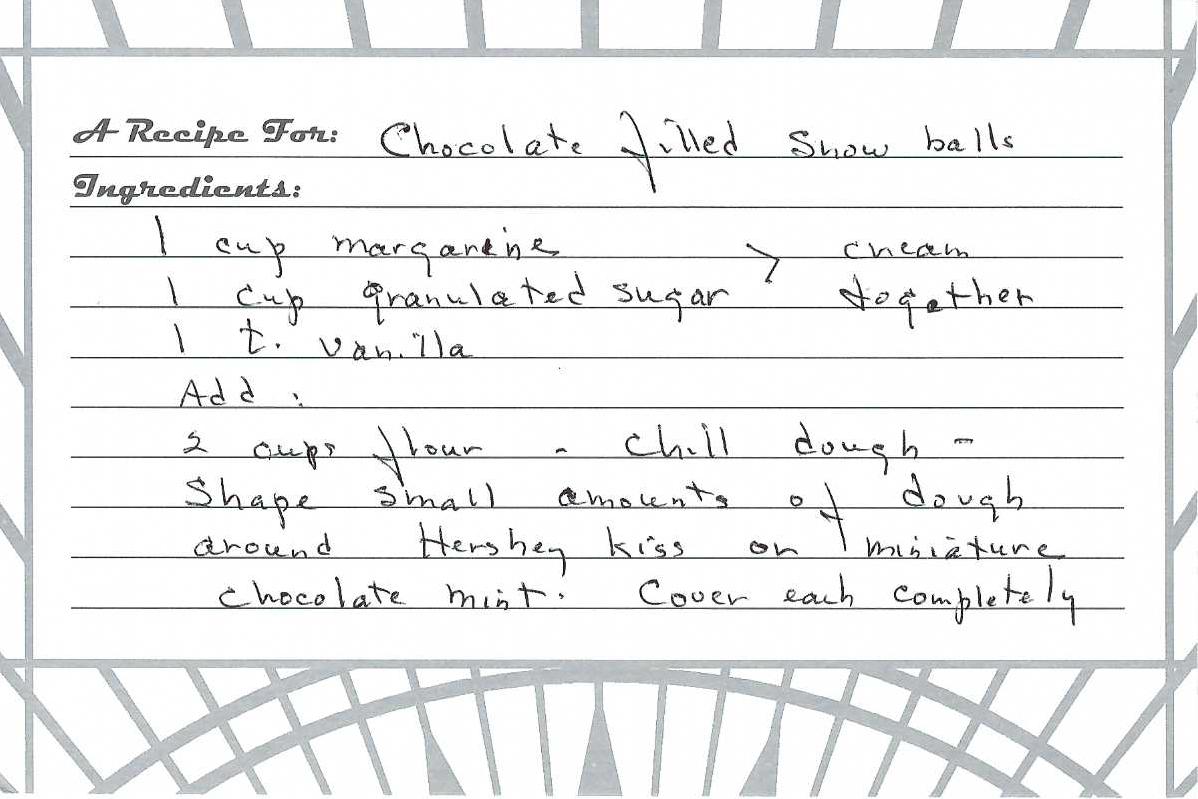 A Recipe For: Chocolate filled Snow balls
Ingredients:
1 cup margarine > cream
1 cup granulated sugar together
1 t. vanilla
Add :
2 cups flour - Chill dough -
Shape small amounts of dough
around Hershey kiss or miniature
chocolate mint. Cover each completely